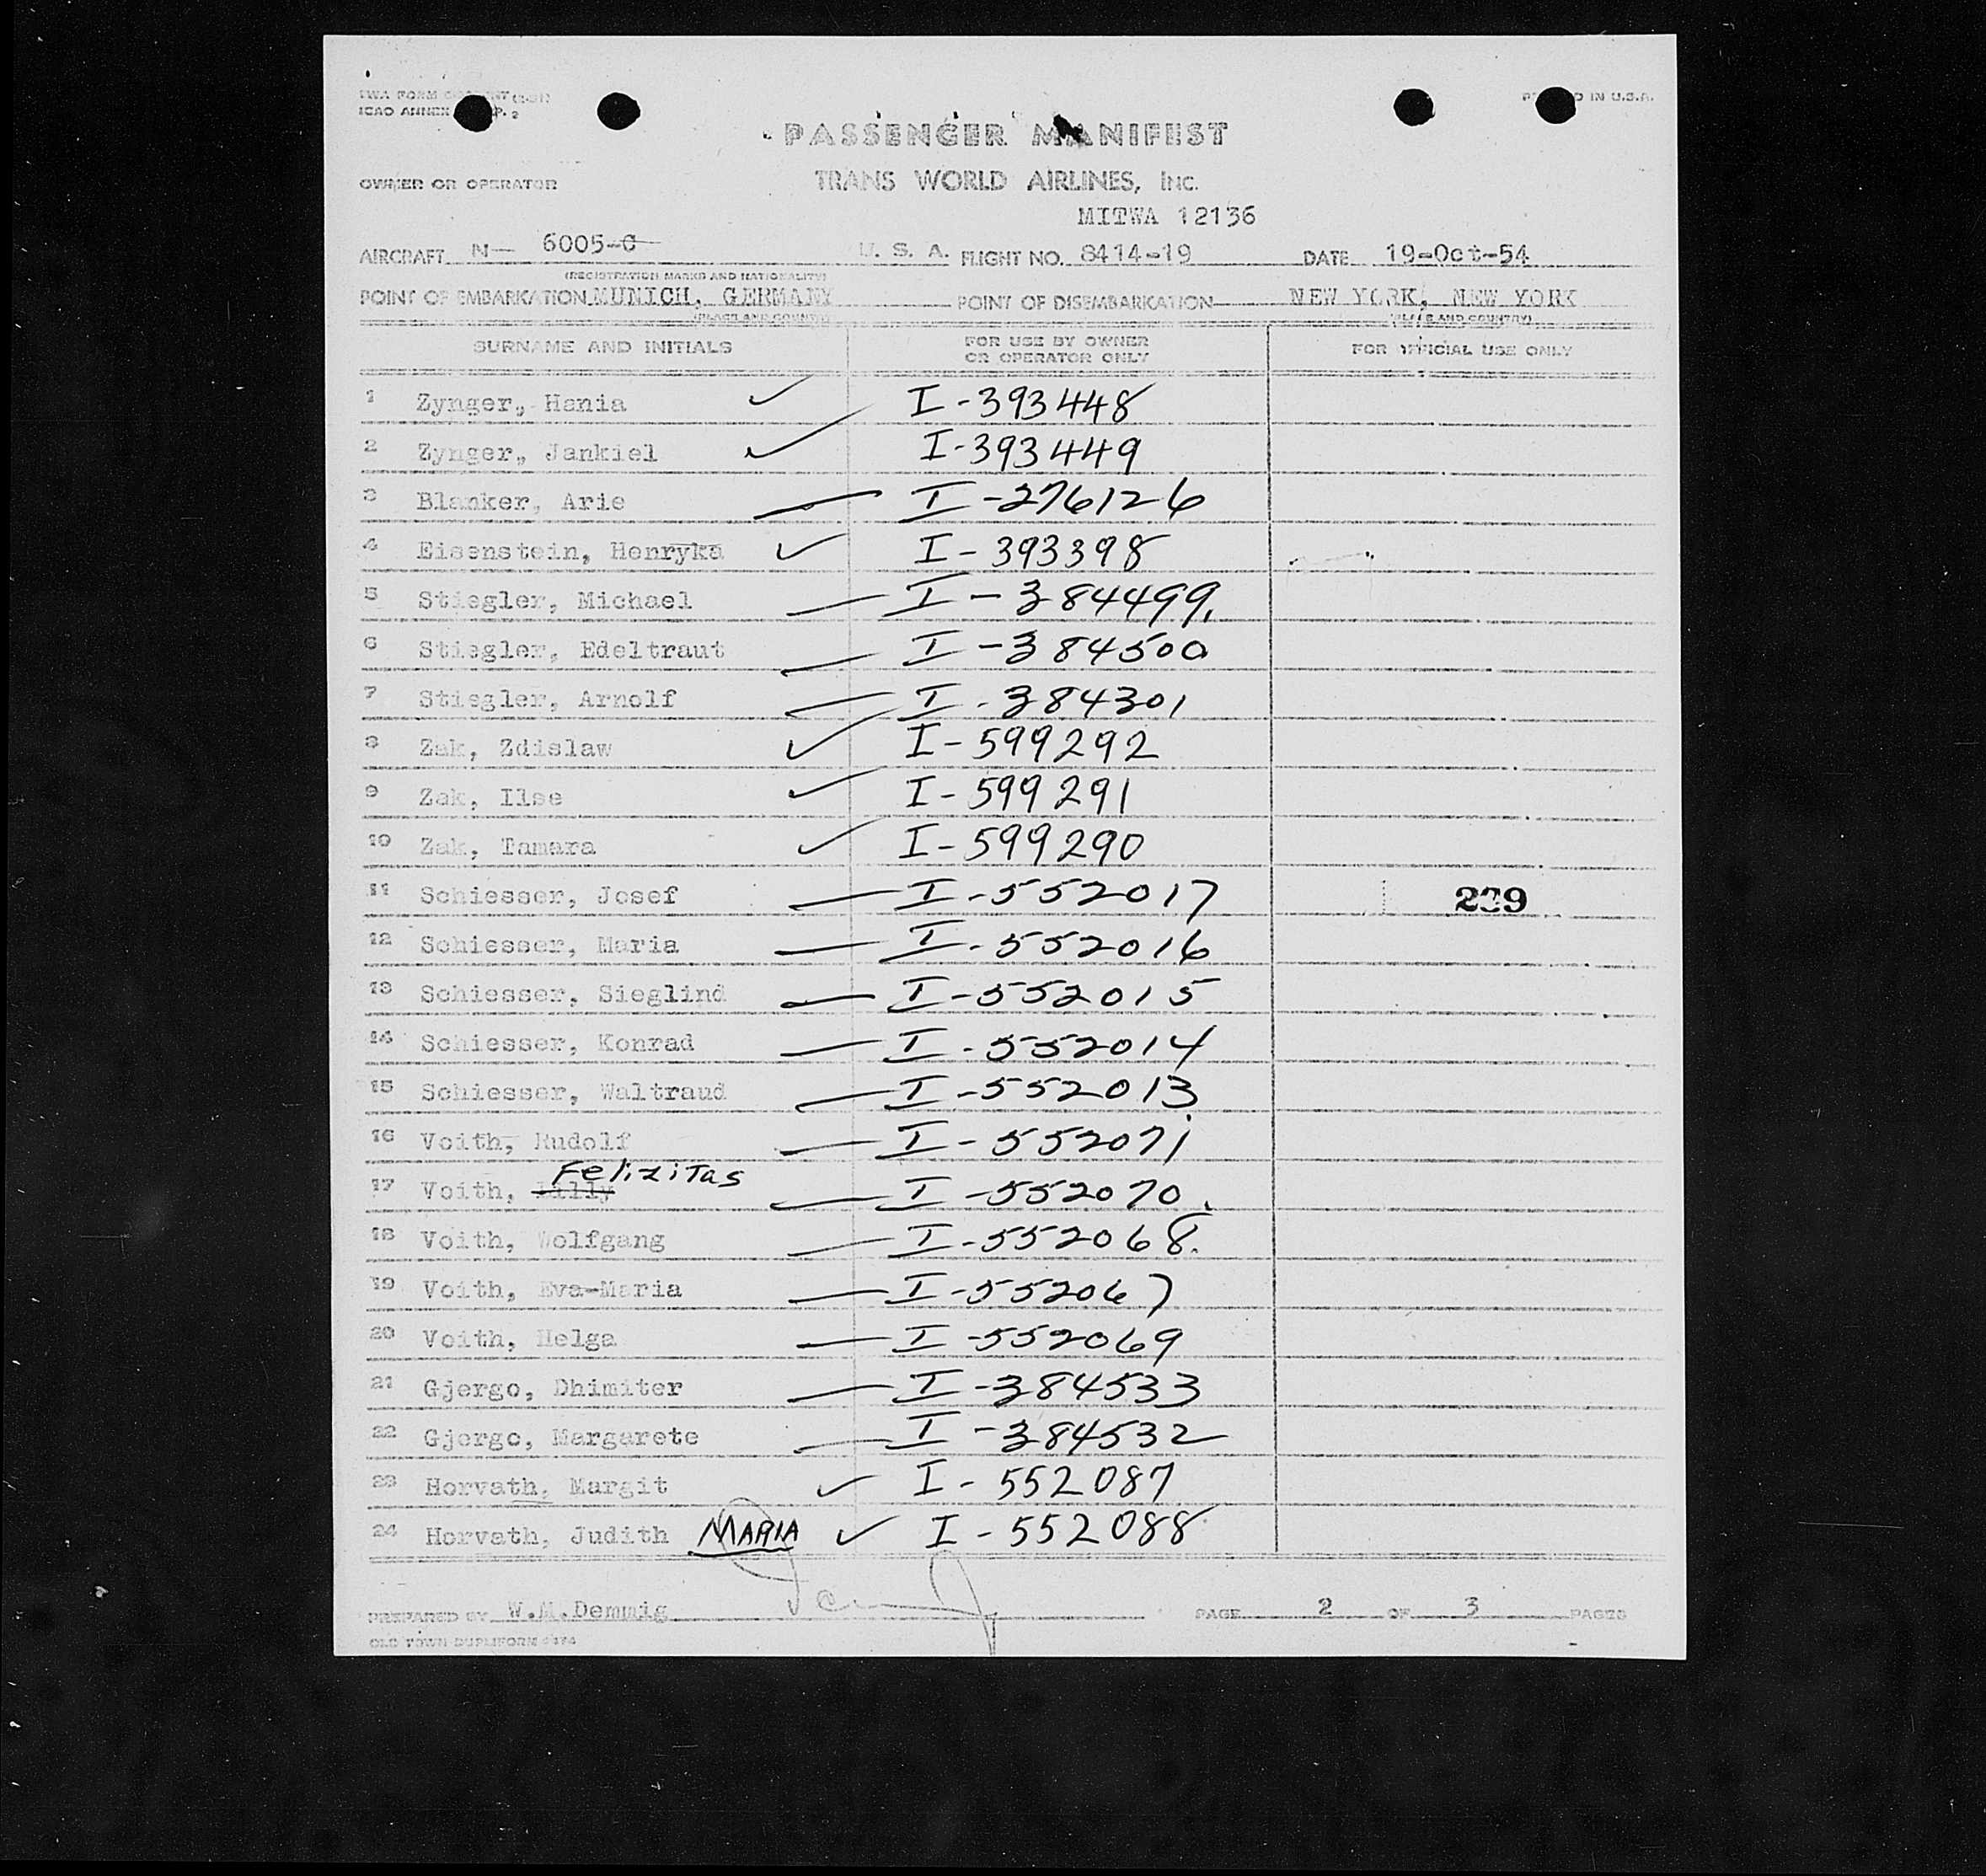 TWA FORM
ICAO ANNEX P. 2
PASSENGER MANIFEST
OWNER OR OPERATOR TRANS WORLD AIRLINES, Inc.
MITWA 12136
AIRCRAFT N— 6005-C U. S. A. FLIGHT NO. 8414-19 DATE 19-Oct-54
(REGISTRATION MARKS AND NATIONALITY)
POINT OF EMBARKATION MUNICH, GERMANY POINT OF DISEMBARKATION NEW YORK, NEW YORK
(PLACE AND COUNTRY) (PLACE AND COUNTRY)
SURNAME AND INITIALS FOR USE BY OWNER OR OPERATOR ONLY FOR OFFICIAL USE ONLY
1 Zynger, Hania I-393448
2 Zynger, Jankiel I-393449
3 Blanker, Arie I-276126
4 Eisenstein, Henryka I-393398
5 Stiegler, Michael I-384499.
6 Stiegler, Edeltraut I-384500
7 Stiegler, Arnolf I-384301
8 Zak, Zdislaw I-599292
9 Zak, Ilse I-599291
10 Zak, Tamara I-599290
11 Schiesser, Josef I-552017 239
12 Schiesser, Maria I-552016
13 Schiesser, Sieglind I-552015
14 Schiesser, Konrad I-552014
15 Schiesser, Waltraud I-552013
16 Voith, Rudolf I-552071
Felizitas
17 Voith, I-552070.
18 Voith, Wolfgang I-552068.
19 Voith, Eva-Maria I-552067
20 Voith, Helga I-552069
21 Gjergo, Dhimiter I-384533
22 Gjergo, Margarete I-384532
23 Horvath, Margit I-552087
24 Horvath, Judith MARIA I-552088
PREPARED BY W.M.Demmig PAGE 2 OF 3 PAGES
OLD TOWN DUPLIFORM